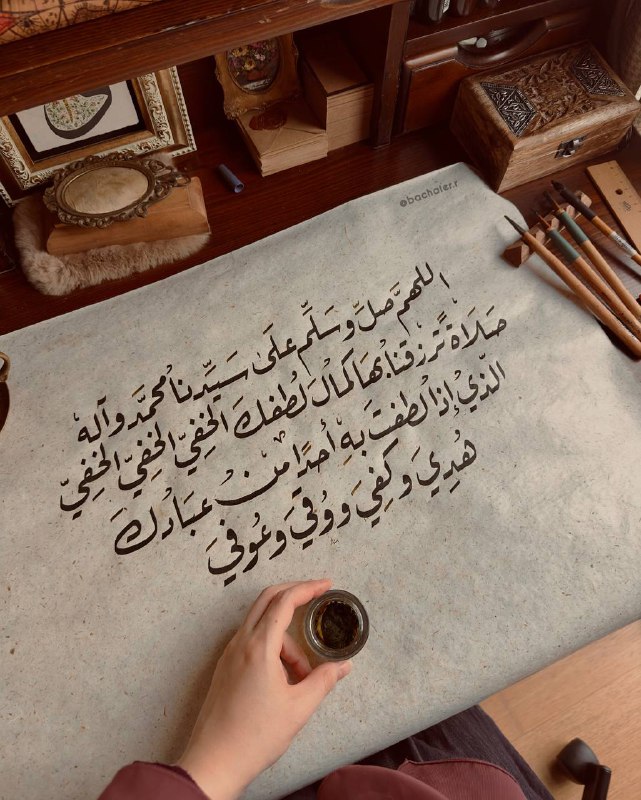 @bachafer.r
اللهم صَلِّ وسَلِّم على سَيِّدنا محمَّد وآله
صَلَاةً تَرزقنا بهَا كمالَ لُطفكَ الخفِيّ الخفِيّ الخفِيّ
الّذي إذا لَطفتَ بِهِ أحدًا من عبَادكَ
هُدِيَ وكُفِيَ ووُقيَ وعُوفيَ